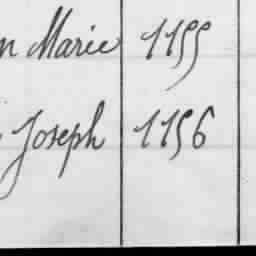 n Marie 1155
Joseph 1156